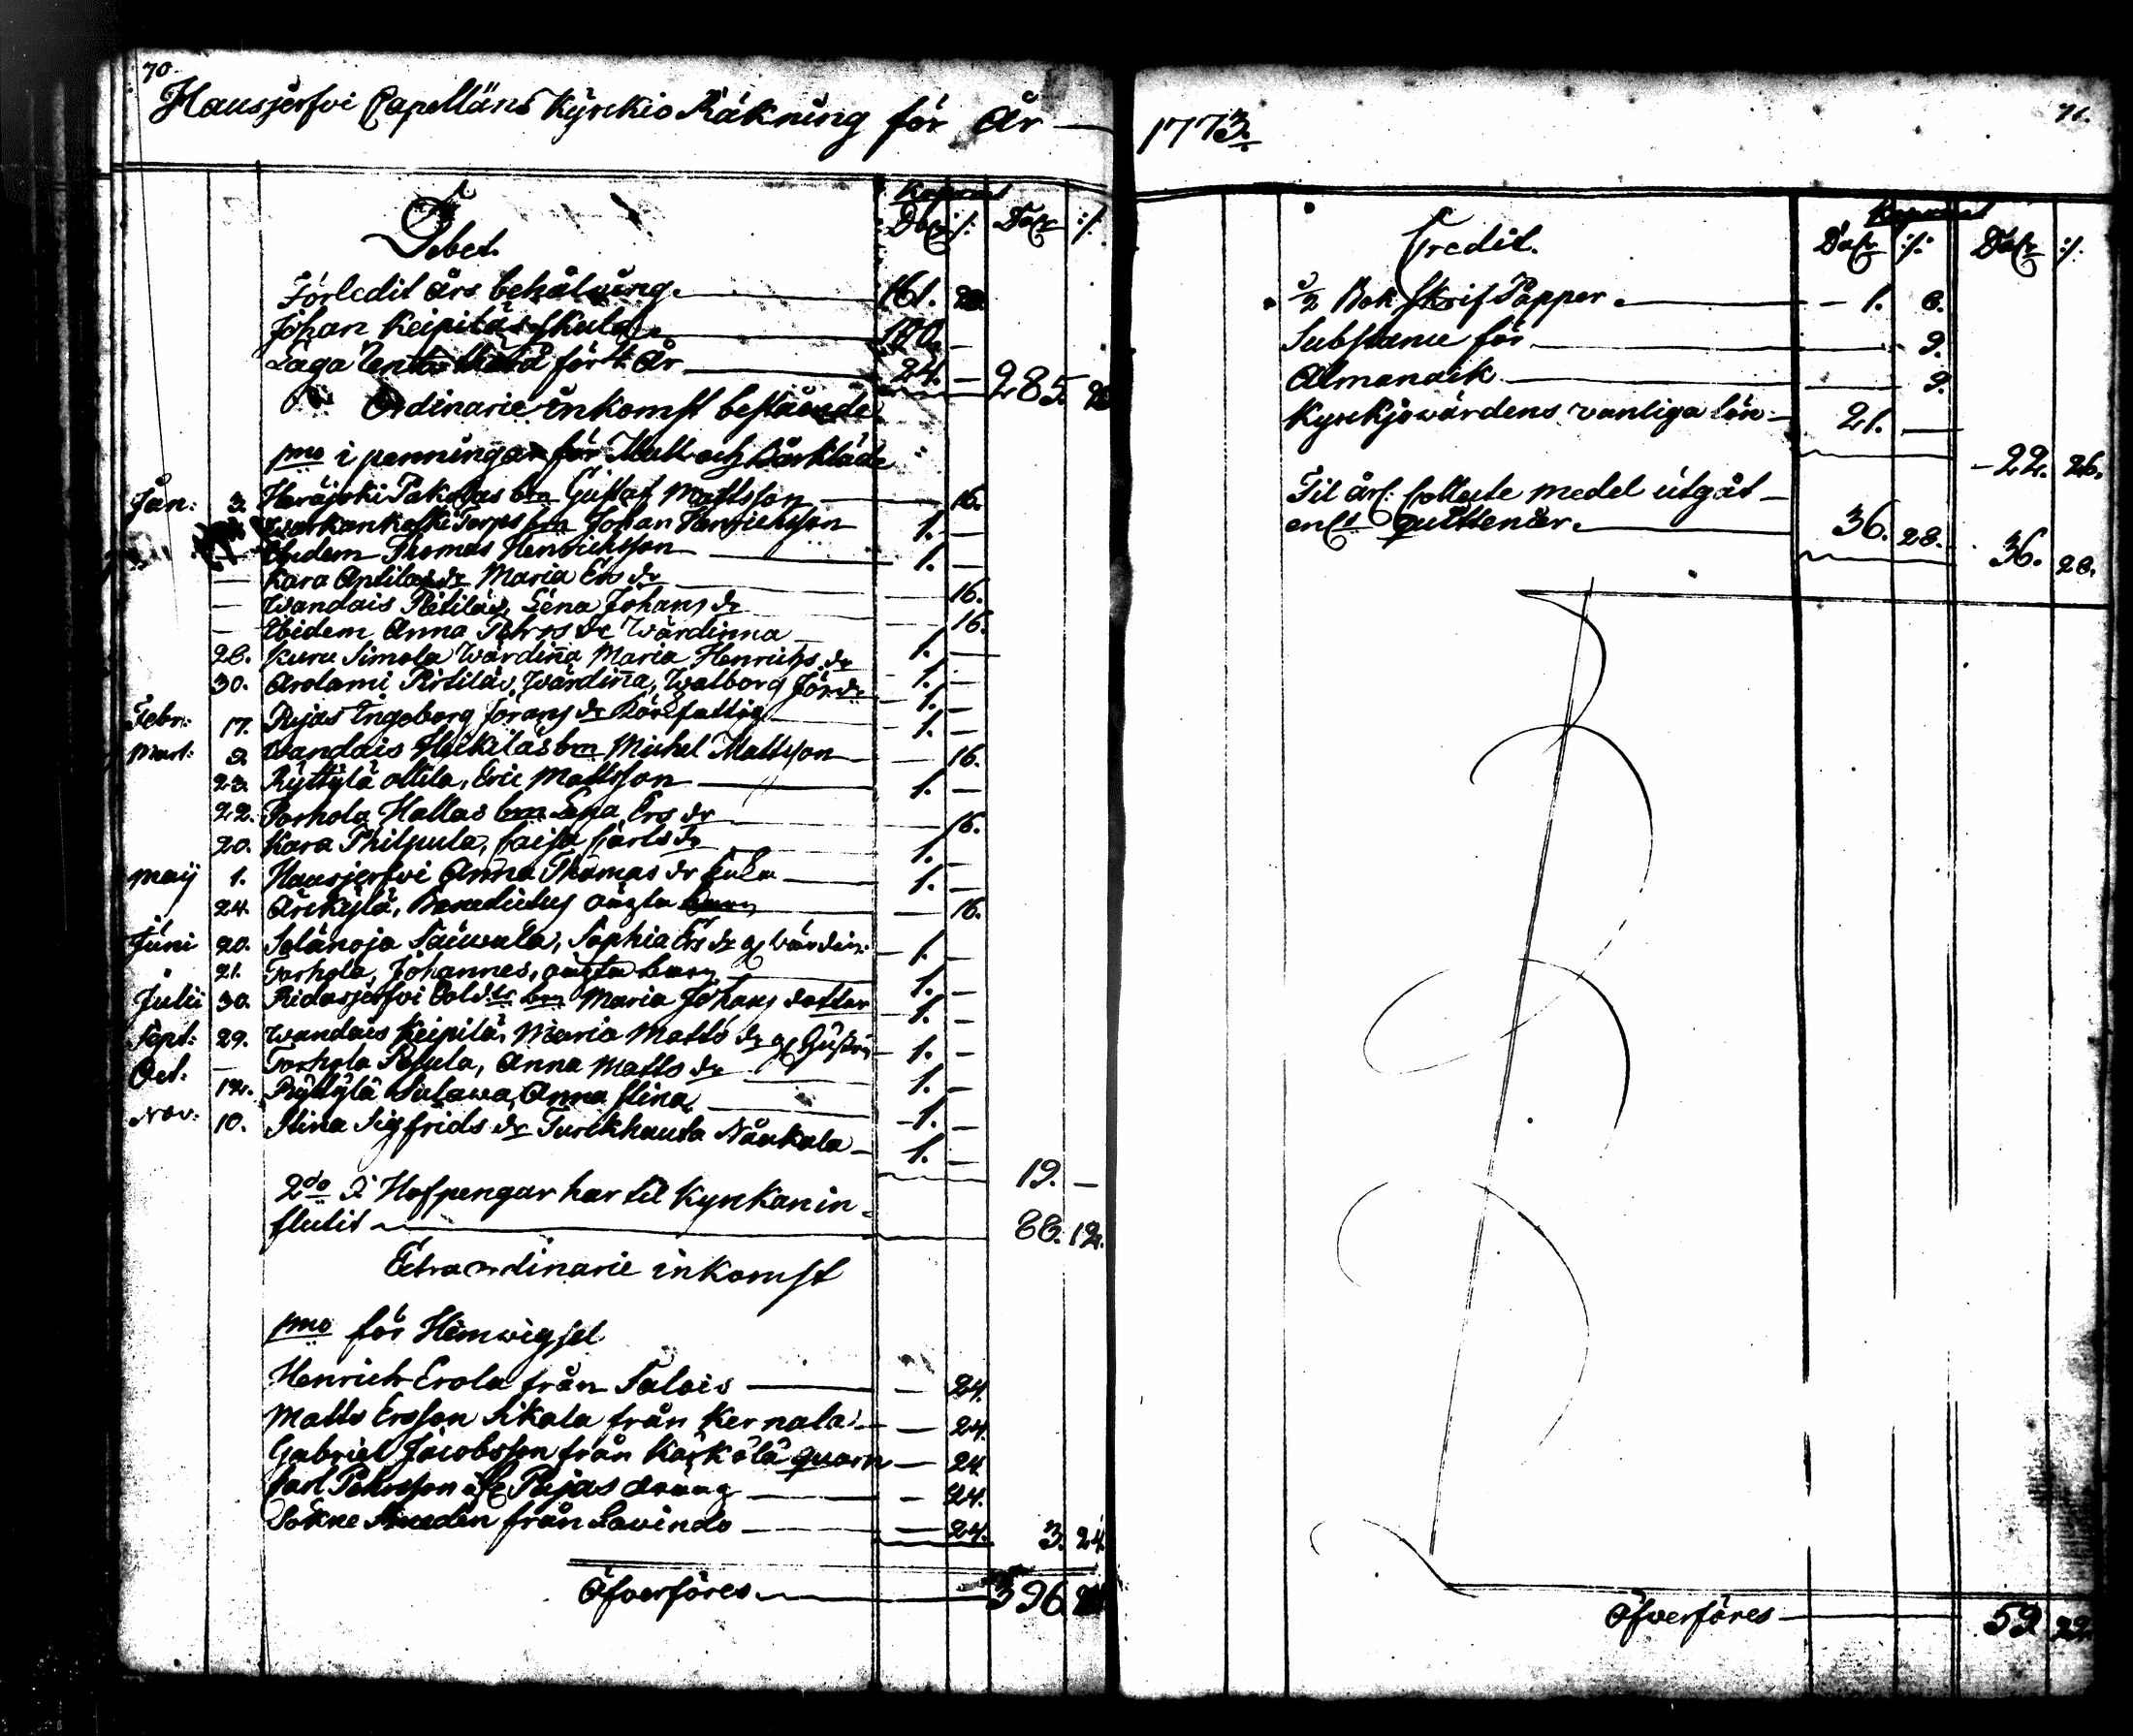 70.
Hausjerfvi Capelläns Kyrckio Räkning för År
Debet.
Kopmt
Dalr :/: Dalr :/:
Förledit års behålning. 161.
Johan Keipiläs skuld. 100. —
Laga Rentan för 4 År 24. — 285.
Ordinarie inkomst bestående
pmo i penningar för Mull och Bårkläde
Jan: 3. Haräjoki Pakolas bm Gustaf Mattsson — 16.
Warkankoski Torps bm Johan Henrichsson 1. —
Ibidem Thomas Henrichsson 1. —
— Kara Antilas dr Maria Ers dr — 16.
— Wandais Pietilä, Lena Johans dr — 16.
— Ibidem Anna Pehrs dr Wärdinna 1. —
28. Kuru Simola Wärdiña Maria Henrichs dr 1. —
30. Arolami Pirtilä, Wärdiña, Walborg Jör dr 1. —
Febr: 17. Ryas Ingeborg Jörans dr Rörsfattig 1. —
Mart: 9. Wandais Heikiläs bm Michel Mattsson — 16.
23. Ryttylä ollila, Eric Mattsson 1. —
22. Torhola Hallas bm Lena Ers dr — 16.
20. Kara Philpula, Caisa Carls dr 1. —
Maij 1. Hausjerfvi Anna Thomas dr Enka 1. —
24. Örikylä, Benedictus oägta barn — 16.
Juni 20. Selänoja Sauvala, Sophia Ers dr gl Wärdin: 1. —
21. Torhola, Johannes, oägta barn 1. —
Julii 30. Ridasjerfvi Sold:ts bm Maria Johans dotter 1. —
Sept: 29. Wandais Keipilä, Maria Matts dr gl Hustru 1. —
Oct: — Torhola Pesula, Anna Matts dr 1. —
12. Ryttylä Sulawa, Anna Stina 1. —
Nov: 10. Stina Sigfrids dr Turckhauta Nåukala 1. —
19. —
2do I Hofpengar har til Kyrkan in-
flutit 88. 12.
Extraordinarie inkomst
pmo för Hemwigsel
Henrich Erola från Salois — 24.
Matts Ersson Sikala från Kernala — 24.
Gabriel Jacobsson från Kärkölä quarn — 24
Carl Pehrsson Ryas dräng — 24.
Sokne Smeden från Lavindo — 24. 3. 24.
Öfverföres 396.
1773.
71.
Credit.
Kopmt
Dalr :/: Dalr :/:
1/2 Bok Skrif Papper. 1. 8.
Substance för 9.
Almanack 9.
Kyrckjowärdens vanliga lön 21. —
22. 26.
Til årl: Collecte medel utgåt
enl:t quittencer. 36. 28. 36. 28.
Öfwerföres 59 22.